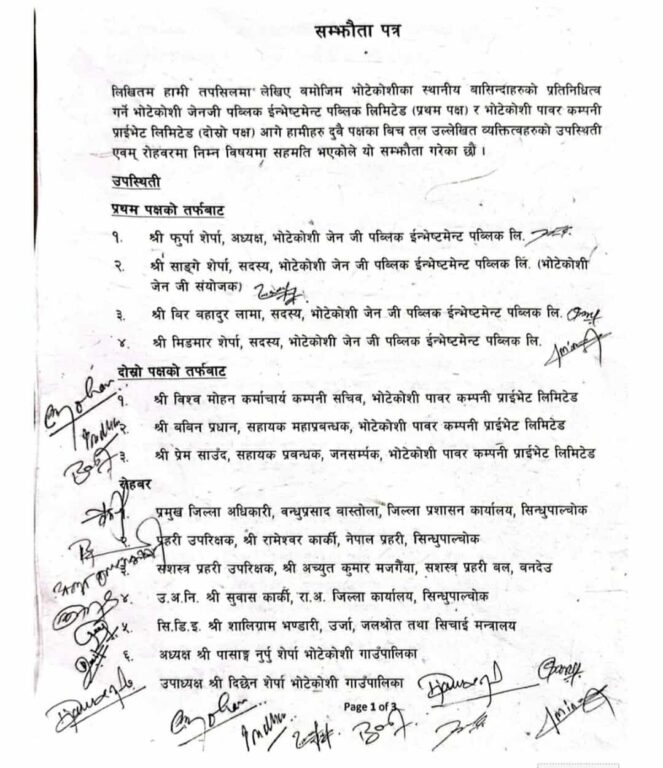 सम्झौता पत्र
लिखितम हामी तपसिलमा लेखिए बमोजिम भोटेकोशीका स्थानीय बासिन्दाहरुको प्रतिनिधित्व
गर्ने भोटेकोशी जेनजी पब्लिक ईन्भेष्टमेन्ट पब्लिक लिमिटेड (प्रथम पक्ष) र भोटेकोशी पावर कम्पनी
प्राईभेट लिमिटेड (दोस्रो पक्ष) आगे हामीहरु दुवै पक्षका बिच तल उल्लेखित व्यक्तित्वहरुको उपस्थिती
एवम् रोहवरमा निम्न विषयमा सहमति भएकोले यो सम्झौता गरेका छौं ।
उपस्थिती
प्रथम पक्षको तर्फबाट
१. श्री फुर्पा शेर्पा, अध्यक्ष, भोटेकोशी जेन जी पब्लिक ईन्भेष्टमेन्ट पब्लिक लि.
२. श्री साङ्गे शेर्पा, सदस्य, भोटेकोशी जेन जी पब्लिक ईन्भेष्टमेन्ट पब्लिक लि. (भोटेकोशी
जेन जी संयोजक)
३. श्री बिर बहादुर लामा, सदस्य, भोटेकोशी जेन जी पब्लिक ईन्भेष्टमेन्ट पब्लिक लि.
४. श्री मिडमार शेर्पा, सदस्य, भोटेकोशी जेन जी पब्लिक ईन्भेष्टमेन्ट पब्लिक लि.
दोस्रो पक्षको तर्फबाट
१. श्री विश्व मोहन कर्माचार्य कम्पनी सचिव, भोटेकोशी पावर कम्पनी प्राईभेट लिमिटेड
२. श्री बबिन प्रधान, सहायक महाप्रवन्धक, भोटेकोशी पावर कम्पनी प्राईभेट लिमिटेड
३. श्री प्रेम साउंद, सहायक प्रवन्धक, जनसर्म्पक, भोटेकोशी पावर कम्पनी प्राईभेट लिमिटेड
रोहबर
प्रमुख जिल्ला अधिकारी, वन्धुप्रसाद वास्तोला, जिल्ला प्रशासन कार्यालय, सिन्धुपाल्चोक
प्रहरी उपरिक्षक, श्री रामेश्वर कार्की, नेपाल प्रहरी, सिन्धुपाल्चोक
३. सशस्त्र प्रहरी उपरिक्षक, श्री अच्युत कुमार मजगैंया, सशस्त्र प्रहरी बल, वनदेउ
४. उ.अ.नि. श्री सुवास कार्की, रा.अ. जिल्ला कार्यालय, सिन्धुपाल्चोक
५. सि.डि.इ. श्री शालिग्राम भण्डारी, उर्जा, जलश्रोत तथा सिचाई मन्त्रालय
६. अध्यक्ष श्री पासाङ्ग नुर्पु शेर्पा भोटेकोशी गाउँपालिका
उपाध्यक्ष श्री दिछेन शेर्पा भोटेकोशी गाउँपालिका
Page 1 of 3